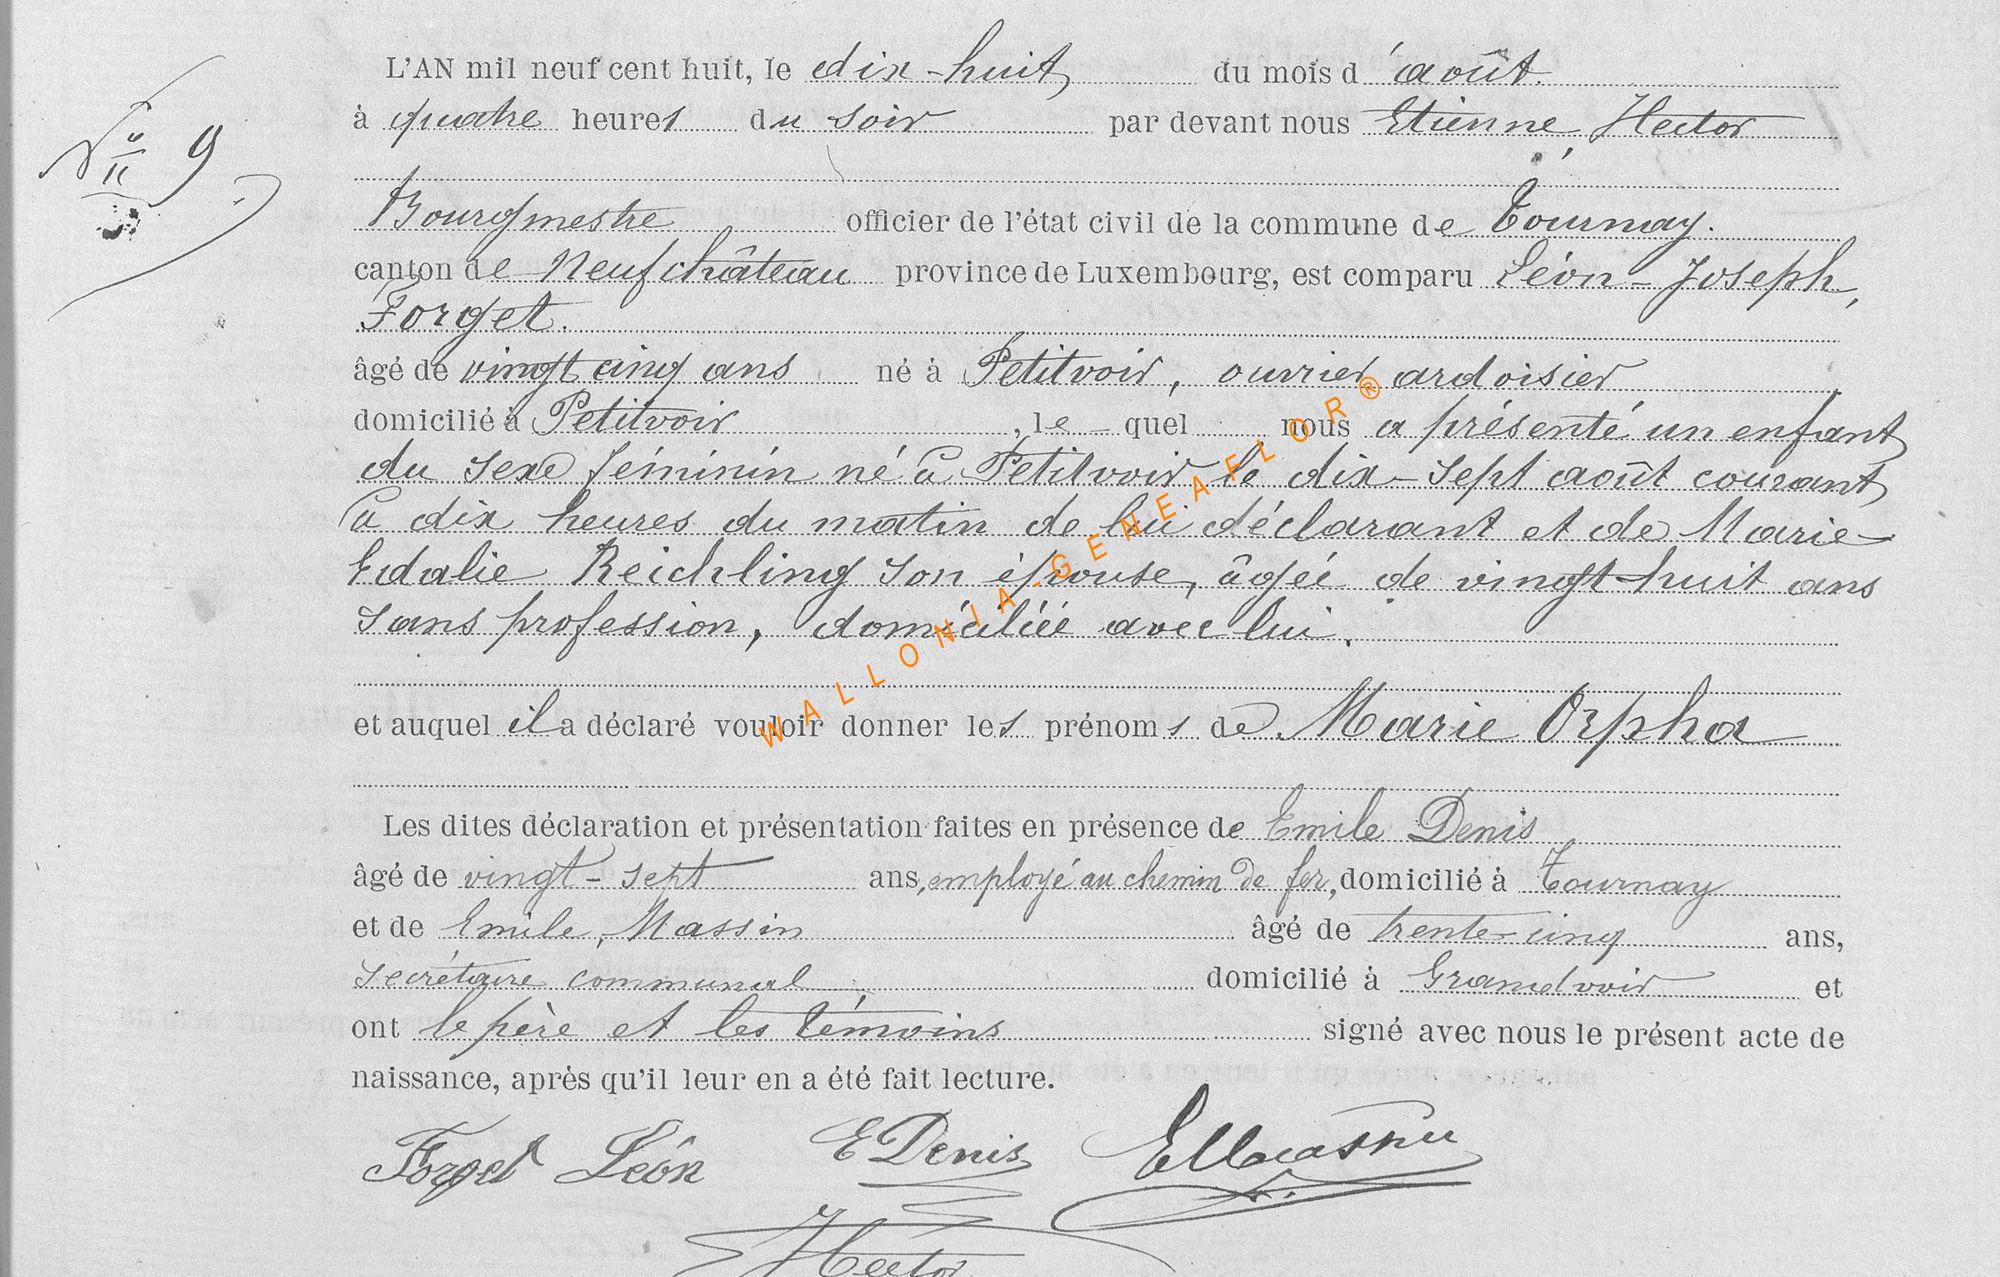 L'AN mil neuf cent huit, le dix-huit du mois d'août.
à quatre heures du soir par devant nous Etienne, Hector
N° 9
Bourgmestre officier de l'état civil de la commune de Tournay.
canton de Neufchâteau province de Luxembourg, est comparu Léon-Joseph,
Forget.
âgé de vingt cinq ans né à Petitvoir, ouvrier ardoisier
domicilié à Petitvoir, le-quel nous a présenté un enfant
du sexe féminin né à Petitvoir le dix-sept août courant
à dix heures du matin de lui déclarant et de Marie-
Edalie Reichling son épouse, âgée de vingt-huit ans
sans profession, domiciliée avec lui.
et auquel il a déclaré vouloir donner les prénoms de Marie Orpha
Les dites déclaration et présentation faites en présence de Emile Denis
âgé de vingt-sept ans, employé au chemin de fer, domicilié à Tournay
et de Emile, Massin âgé de trente-cinq ans,
secrétaire communal domicilié à Grandvoir et
ont le père et les témoins signé avec nous le présent acte de
naissance, après qu'il leur en a été fait lecture.
Forget Léon E Denis E Massin
Hector
WALLONIA-GENEAFLOR®